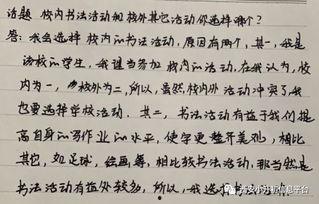 话题 校内书法活动和校外其它活动你选择哪个?
答:我会选择 校内的书法活动,原因有两个,其一,我是
该校的学生,我理当参加 校内的活动,在我认为,校
内为一,校外为二,所以,虽然校内外 活动冲突了我
也要选择学校活动. 其二,书法活动有益于我们提
高自身的写作业的水平,使字更整齐美观,相比
其它,如足球,绘画等,相比较书法活动,那当然是
书法活动有益处较多,所以,我选择
信息平台